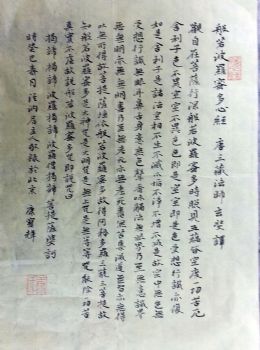 般若波羅蜜多心經 唐三藏法師玄奘譯
觀自在菩薩行深般若波羅蜜多時照見五蘊皆空度一切苦厄
舍利子色不異空空不異色色即是空空即是色受想行識亦復
如是舍利子是諸法空相不生不滅不垢不淨不增不減是故空中無色無
受想行識無眼耳鼻舌身意無色聲香味觸法無眼界乃至無意識界
無無明亦無無明盡乃至無老死亦無老死盡無苦集滅道無智亦無得
以無所得故菩提薩埵依般若波羅蜜多故得阿耨多羅三藐三菩提故
知般若波羅蜜多是大神咒是大明咒是無上咒是無等等咒能除一切苦
真實不虛故說般若波羅蜜多咒即說咒曰
揭諦揭諦波羅揭諦波羅僧揭諦菩提薩婆訶
時癸巳春月 居主人敬錄於北京 康寶輝